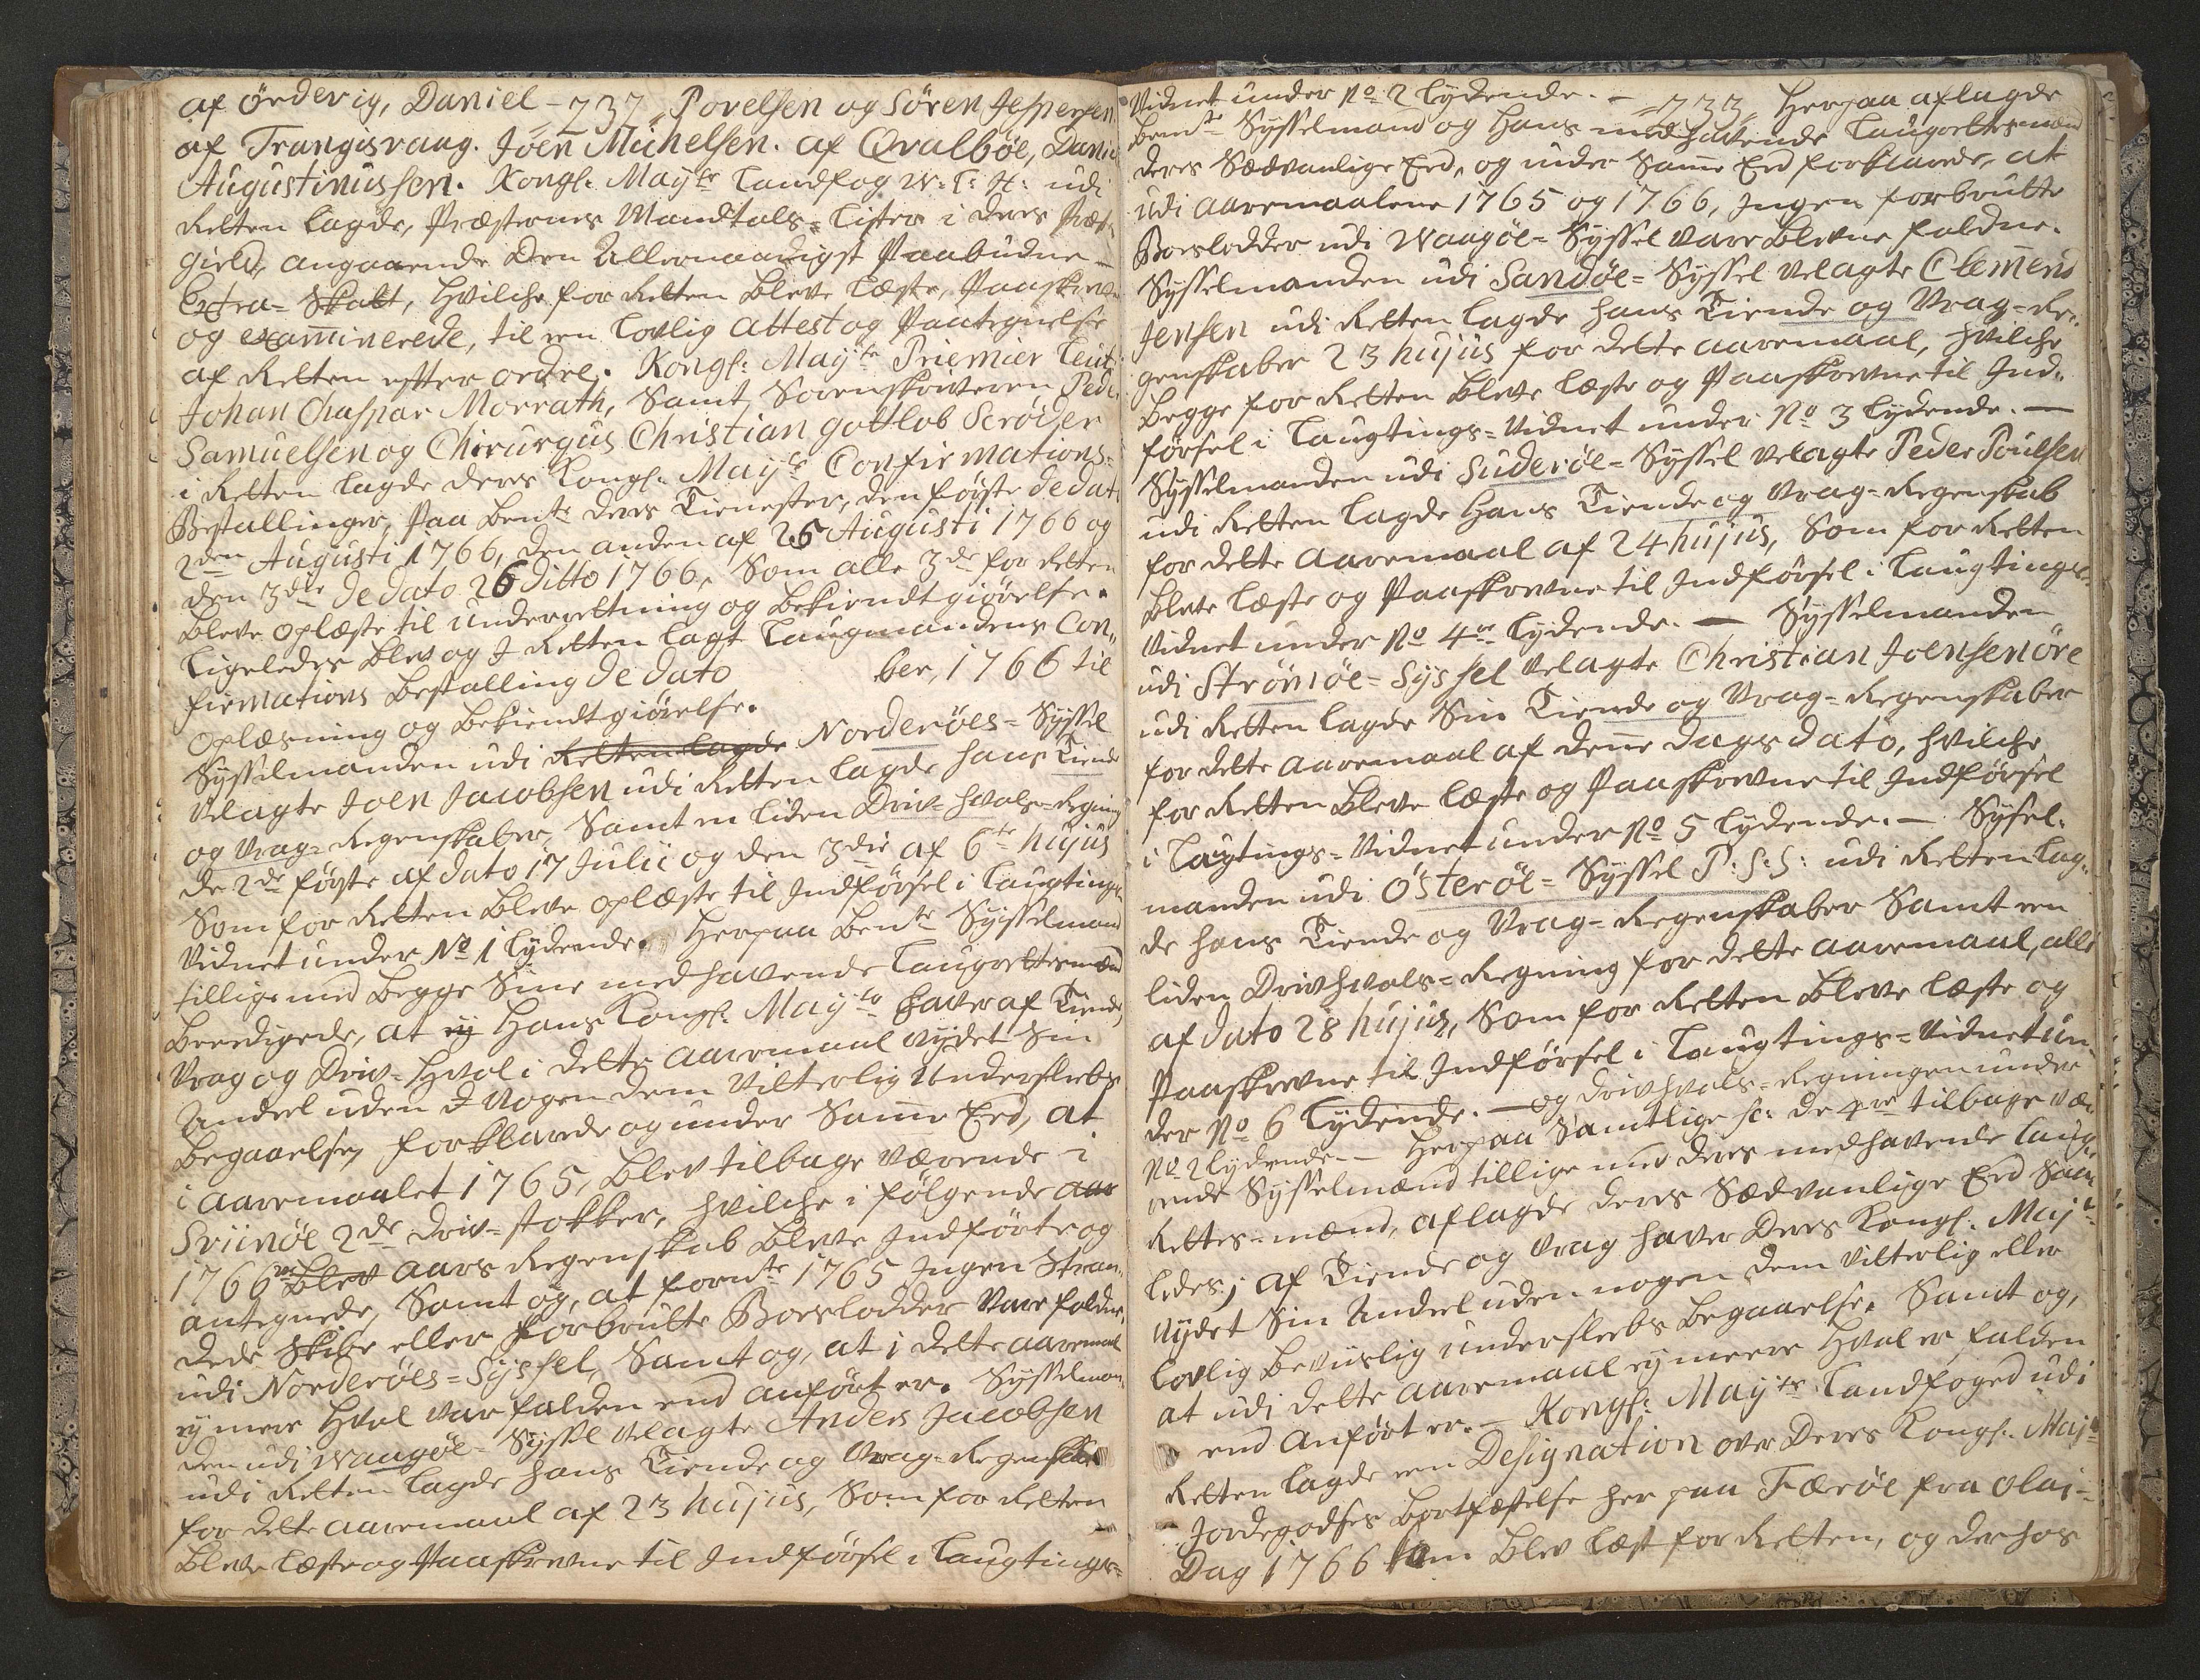 af Örderig, Daniel - 732, Povelsen og Sören Jespersen
af Trangisvaag. Joen Michelsen. af Qvalböe, Daniel
Augustinussen. Kongl: Mayts Landfog W: L: H: udi
Retten lagde, Præsternes Mandtals-Lister i deres Præst„
gield, angaaende den Allernaadigst Paabudne
Extra-Skatt, hvilche for Retten bleve læste, Paaskrevne
og examinerede, til een Lovlig Attest og Paategnelse
af Retten efter ordre. Kongl: Mayts Priemier Leut:
Johan Chaspar Morrath, Samt Sorenskriveren Peder
Samuelsen og Chirurgus Christian Gottlob Scröder
i Retten lagde deres Kongl: Mayts Confirmations-
Bestallinger, Paa bemte deres Tienester, den förste de dato
2den Augusti 1766, den anden af 26 Augusti 1766 og
den 3die de dato 26 ditto 1766, Som alle 3de for Retten
bleve oplæste til underretning og bekiendtgiörelse.
Ligeledes blev og J Retten lagt Laugmandens Con„
firmations bestalling de dato ber, 1766 til
oplæsning og bekiendtgiörelse.
Sysselmanden udi Retten lagde Norderöes-Syssel
Velagte Joen Jacobsen udi Retten lagde hans Tiende
og Vrag-Regenskaber, Samt en liden Driv-hvals-Regning
de 2de förste af dato 17 Julii og den 3die af 6te hujus
Som for Retten bleve oplæste til Indförsel i Laugtings
Vidnet under No 1 lydende. Herpaa bemte Sysselmand
tillige med begge Sine medhavende Laugrettesmænd
beeedigede, at ey Hans Kongl: Mayts haver af Tiende,
Vrag og Driv-Hval i dette aaremaal nydet Sin
Andeel uden J nogen dem Vitterlig Undersleebs
begaaelse, forklarede og under Samme Eed, at
i aaremaalet 1765, blev tilbage værende i
Sviinöe 2de Driv-stokker, hvilche i fölgende aar
1766 blev aars Regenskab bleve Indförte og
antegnede, Samt og, at forte 1765 Ingen Stran„
dede Skibe eller forbrutte Boeslodder vare faldne,
udi Norderöes-Syssel, Samt og, at i dette aaremaal
ey mere Hval var falden end anfört er. Sysselman„
den udi Waagöe-Syssel Velagte Anders Jacobsen
udi Retten lagde hans Tiende og Vrag-Regenskab
for dette aaremaal af 23 hujus, Som for Retten
bleve læste og Paaskrevne til Indförsel i Laugtings-
Vidnet under No 2 lydende. - 733, Herpaa aflagde
bemte Sysselmand og Hans medhavende Laugrettesmænd
deres Sædvanlige Eed, og under Samme Eed forklarede, at
udi aaremaalene 1765 og 1766, Ingen forbrutte
Boeslodder udi Waagöe-Syssel vare blevne faldne.
Sysselmanden udi Sandöe-Syssel Velagte Clemend
Jensen udi Retten lagde hans Tiende og Vrag-Re„
genskaber 23 hujus for dette aaremaal, hvilche
begge for Retten bleve læste og Paaskrevne til Ind„
försel i Laugtings-Vidnet under No 3 lydende. —
Sysselmanden udi Suderöe-Syssel Velagte Peder Poulsen
udi Retten lagde Hans Tiende og Vrag-Regenskab
for dette aaremaal af 24 hujus, Som for Retten
bleve læste og Paaskrevne til Indförsel i Laugtings-
Vidnet under No 4re lydende. — Sysselmanden
udi Strömöe-Syssel Velagte Christian Joensen Öre
udi Retten lagde Sin Tiende og Vrag-Regenskaber
for dette aaremaal af denne Dags dato, hvilche
for Retten bleve læste og Paaskrevne til Indförsel
i Laugtings-Vidnet under No 5 lydende. — Syssel„
manden udi Österöe-Syssel P: S: S: udi Retten lag„
de hans Tiende og Vrag-Regenskaber Samt een
liden Drivhvals-Regning for dette aaremaal, alle
af dato 28 hujus, Som for Retten bleve læste og
Paaskrevne til Indförsel i Laugtings-Vidnet un„
der No 6 lydende. — og Drivhvals-Regningen under
No 2 lydende. — Herpaa Samtlige sc: de 4re tilbage vær„
ende Sysselmænd tillige med deres medhavende Laug„
Rettes-mænd, aflagde deres Sædvanlige Eed Saa„
ledes; af Tiende og Vrag haver Deres Kongl: Mayts
nydet Sin Andeel uden nogen dem Vitterlig eller
lovlig beviislig undersleebs begaaelse. Samt og,
at udi dette aaremaal ey meere Hval er falden
end anfört er. — Kongl: Mayts Landfoged udi
Retten lagde een Designation over Deres Kongl: Mayts
Jordegodses bortfæstelse her paa Færöe fra Olai-
Dag 1766 som blev læst for Retten, og derhos